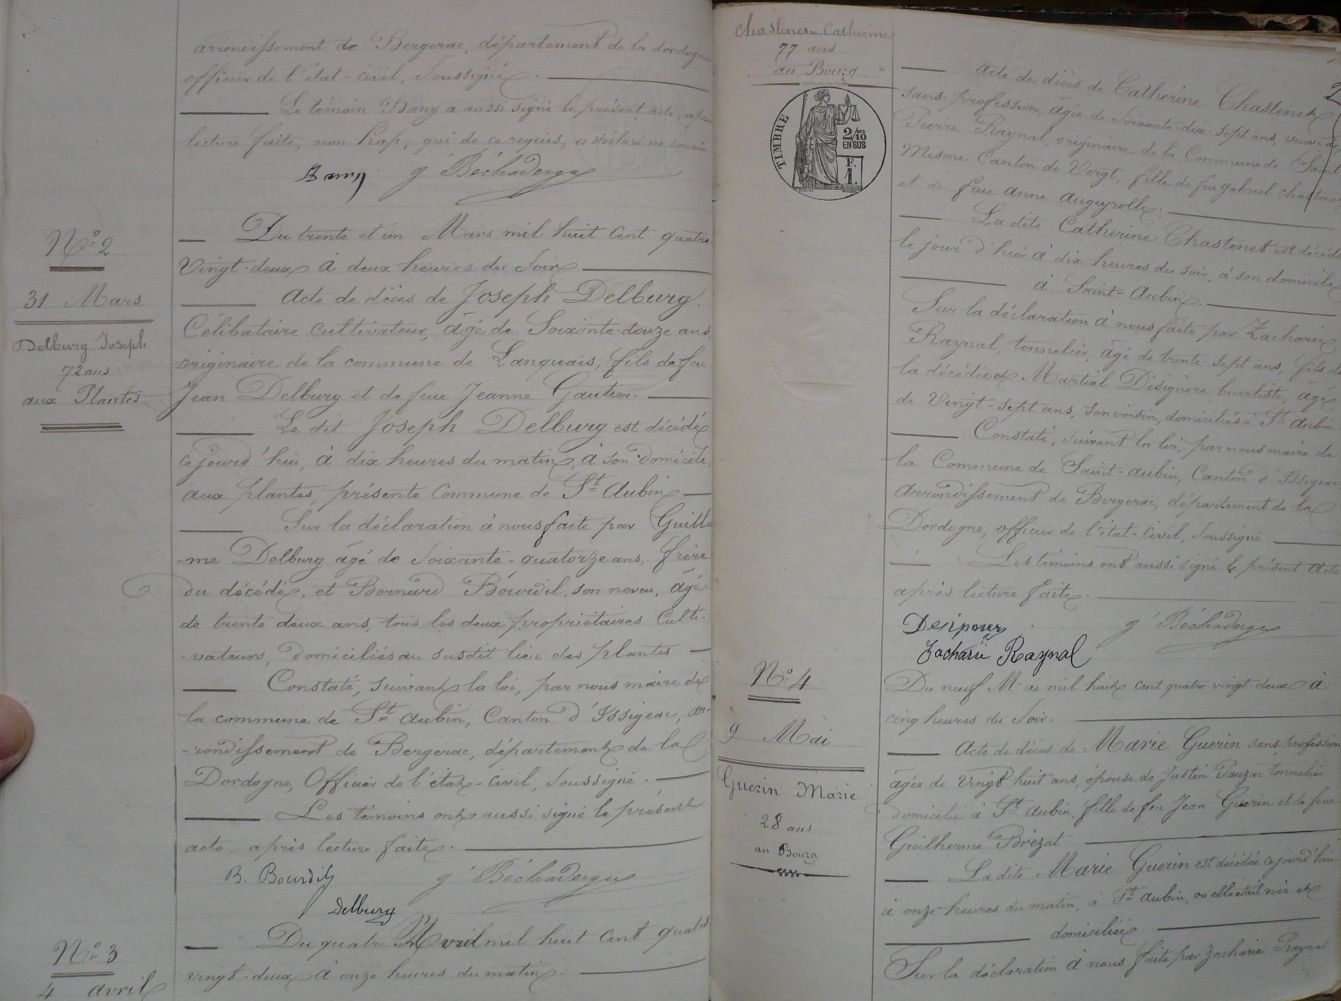 arrondissement de Bergerac, département de la dordogne
officier de l'état-civil, soussigné.
Le témoin Bany a aussi signé le présent acte, après
lecture faite, non Rap, qui de ce requis, a déclaré ne savoir
Bany g Béchadergue
N° 2
31 Mars
Delburg Joseph
72 ans
aux Plantes
Du trente et un Mars mil huit cent quatre-
Vingt-deux à deux heures du Soir
Acte de décès de Joseph Delburg,
Célibataire cultivateur, âgé de Soixante-douze ans,
originaire de la commune de Lanquais, fils de feu
Jean Delburg et de feue Jeanne Gautier.
Le dit Joseph Delburg est décédé
ce jourd'hui, à dix heures du matin, à son domicile,
aux plantes, présente Commune de St Aubin
Sur la déclaration à nous faite par Guillau-
-me Delburg âgé de Soixante-quatorze ans, frère
du décédé, et Bernard Bourdil, son neveu, âgé
de trente deux ans, tous les deux propriétaires Culti-
-vateurs, domiciliés au susdit lieu des plantes
Constaté, suivant la loi, par nous maire de
la commune de St Aubin, Canton d'Issigeac, ar-
-rondissement de Bergerac, département de la
Dordogne, Officier de l'état-civil, soussigné.
Les témoins ont aussi signé le présent
acte, après lecture faite.
B. Bourdil g Béchadergue
Delburg
N° 3
4 avril
Du quatre Avril mil huit cent quatre
vingt-deux à onze heures du matin.
Chastenet Catherine
77 ans
au Bourg
TIMBRE
2/10
EN SUS
1 F.
Acte de décès de Catherine Chastenet
sans profession, âgée de soixante-dix-sept ans, veuve de
Pierre Raynal, originaire de la Commune de Saint
Mesme Canton de Vergt, fille de feu gabriel chastenet
et de feue anne augeyrolle.
La dite Catherine Chastenet est décédée
le jour d'hier à dix heures du soir, à son domicile
à Saint-Aubin.
Sur la déclaration à nous faite par Zacharie
Raynal, tonnelier, âgé de trente sept ans, fils de
la décédée et Martial Désignère, buraliste, âgé
de Vingt-sept ans, son voisin, domiciliés à St Aubin
Constaté, suivant la loi, par nous maire de
la Commune de Saint-aubin, Canton d'Issigeac
Arrondissement de Bergerac, département de la
Dordogne, officier de l'état-civil, soussigné
Les témoins ont aussi signé le présent acte
après lecture faite.
g Béchadergue
Zacharie Raynal
N° 4
9 Mai
Guerin Marie
28 ans
au Bourg
Du neuf Mai mil huit cent quatre-vingt-deux à
cinq heures du Soir.
Acte de décès de Marie Guerin sans profession
âgée de Vingt huit ans, épouse de Justin Pauzat tonnelier
domicilié à St Aubin, fille de feu Jean Guerin et de feue
Guilherme Brézat
La dite Marie Guerin est décédée ce jourd'hui
à onze heures du matin, à St Aubin, ou elle était née et
domiciliée
Sur la déclaration à nous faite par Zacharie Raynal